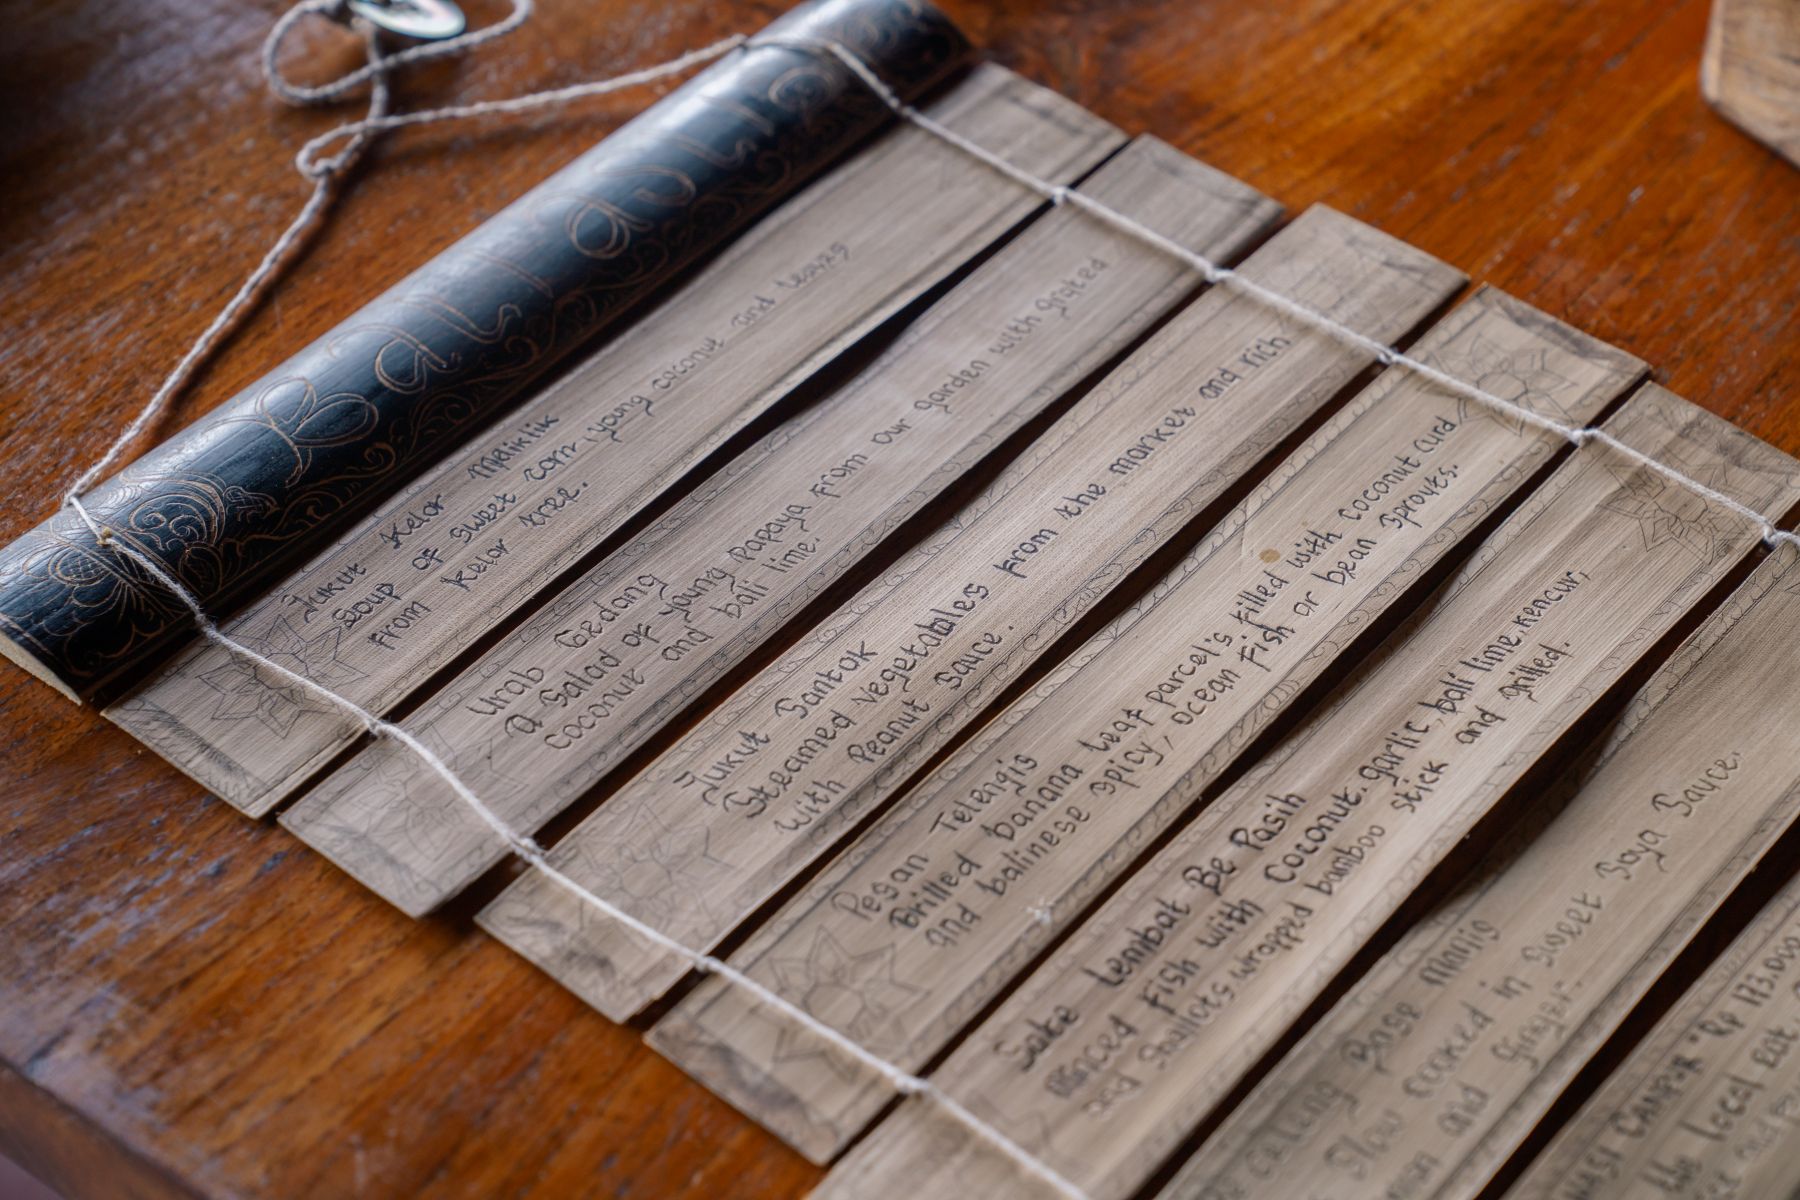 Baliasli
Jukut Kelor Meiklik
Soup of sweet corn, young coconut and leaves
from kelor tree.
Urab Gedang
A Salad of young Papaya from our garden with grated
coconut and bali lime.
Jukut Santok
Steamed vegetables from the market and rich
with Peanut Sauce.
Pesan Telengis
Grilled banana leaf parcel's filled with coconut curd
and balinese spicy, ocean fish or bean sprouts.
Sate Lembat Be Pasih
Minced fish with Coconut, garlic, bali lime, kencur,
and Shallots wrapped bamboo stick and grilled.
Manis
Slow cooked in Sweet Soya Sauce.
and Ginger.
NASI CAMPUR "Rp 173.000
the local eat